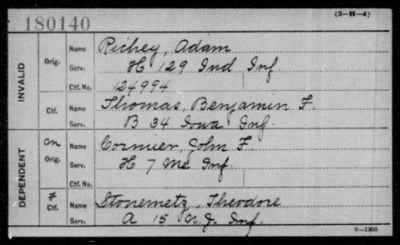 180140
(3-H-4)
INVALID
Orig. Name Richey, Adam
Serv. H 129 Ind Inf
Ctf. No. 124994
Ctf. Name Thomas, Benjamin F.
Serv. B 34 Iowa Inf.
DEPENDENT
On Orig. Name Cormier, John F.
Serv. H 7 Me Inf.
Ctf. No.
Ctf. Name Stonemetz, Theodore
Serv. A 15 N.J. Inf.